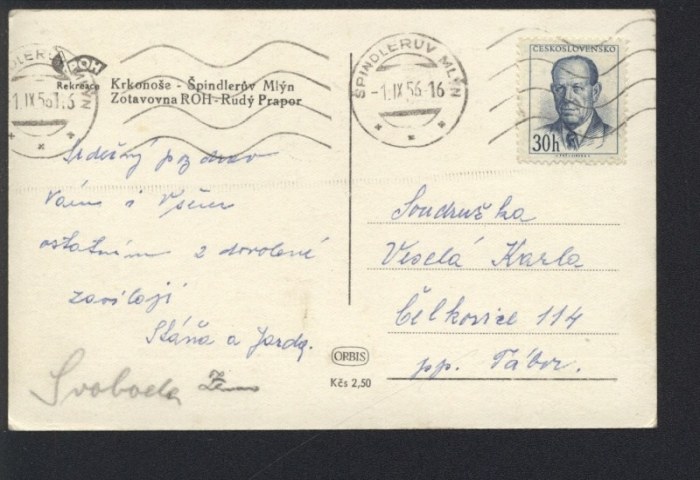 ROH
Rekreace
Krkonoše - Špindlerův Mlýn
Zotavovna ROH - Rudý Prapor
ŠPINDLERŮV MLÝN
-1.IX.56-16
ČESKOSLOVENSKO
30h
Srdečný pozdrav
Vám i Všem
ostatním z dovolené
zasílají
Stáňa a Jarda.
Svoboda
Soudružka
Veselá Karla
Čelkovice 114
pp. Tábor.
ORBIS
Kčs 2,50